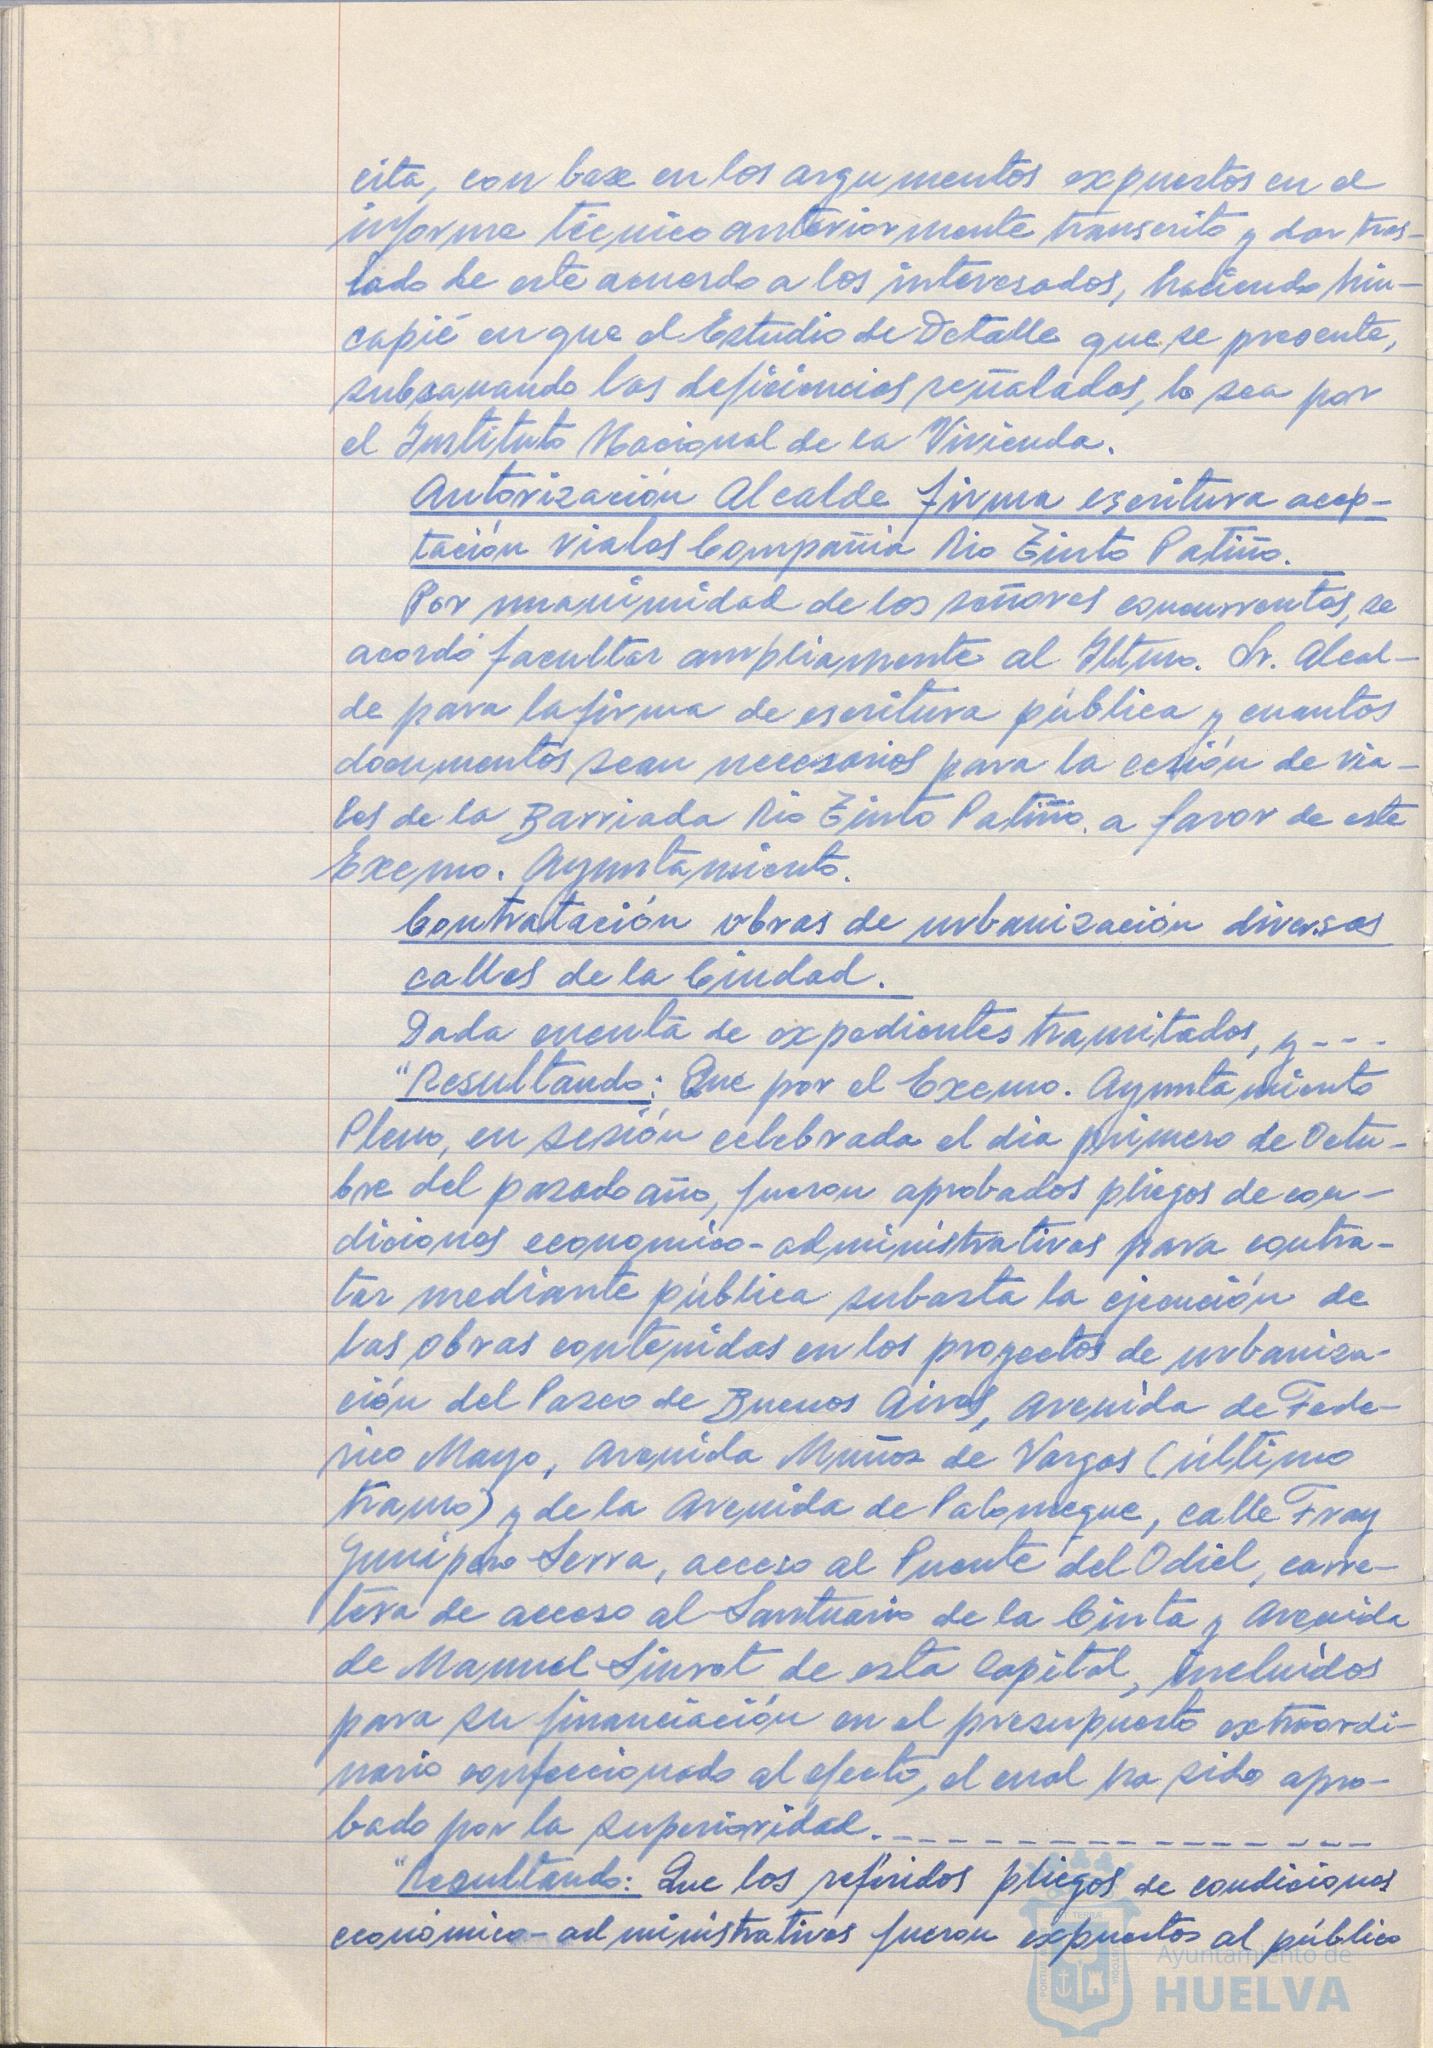 cita, con base en los argumentos expuestos en el
informe técnico anteriormente transcrito y dar tras-
lado de este acuerdo a los interesados, haciendo hin-
capié en que el Estudio de Detalle que se presente,
subsanando las deficiencias señaladas, lo sea por
el Instituto Nacional de la Vivienda.
Autorización Alcalde firma escritura acep-
tación viales Compañia Rio Tinto Patiño.
Por unanimidad de los señores concurrentes, se
acordó facultar ampliamente al Iltmo. Sr. Alcal-
de para la firma de escritura pública y cuantos
documentos sean necesarios para la cesión de via-
les de la Barriada Rio Tinto Patiño, a favor de este
Excmo. Ayuntamiento.
Contratación obras de urbanización diversas
calles de la Ciudad.
Dada cuenta de expedientes tramitados, y - - -
"Resultando: Que por el Excmo. Ayuntamiento
Pleno, en sesión celebrada el dia primero de Octu-
bre del pasado año, fueron aprobados pliegos de con-
diciones economico-administrativas para contra-
tar mediante pública subasta la ejecución de
las obras contenidas en los proyectos de urbaniza-
ción del Paseo de Buenos Aires, Avenida de Fede-
rico Mayo, Avenida Muñoz de Vargas (último
tramo) y de la Avenida de Palomeque, calle Fray
Junipero Serra, acceso al Puente del Odiel, carre-
tera de acceso al Santuario de la Cinta y Avenida
de Manuel Siurot de esta Capital, incluídos
para su financiación en el presupuesto extraordi-
nario confeccionado al efecto, el cual ha sido apro-
bado por la superioridad. - - - - - - - - - - - - - - -
"Resultando: Que los referidos pliegos de condiciones
económico-administrativas fueron expuestos al público
Ayuntamiento de
HUELVA